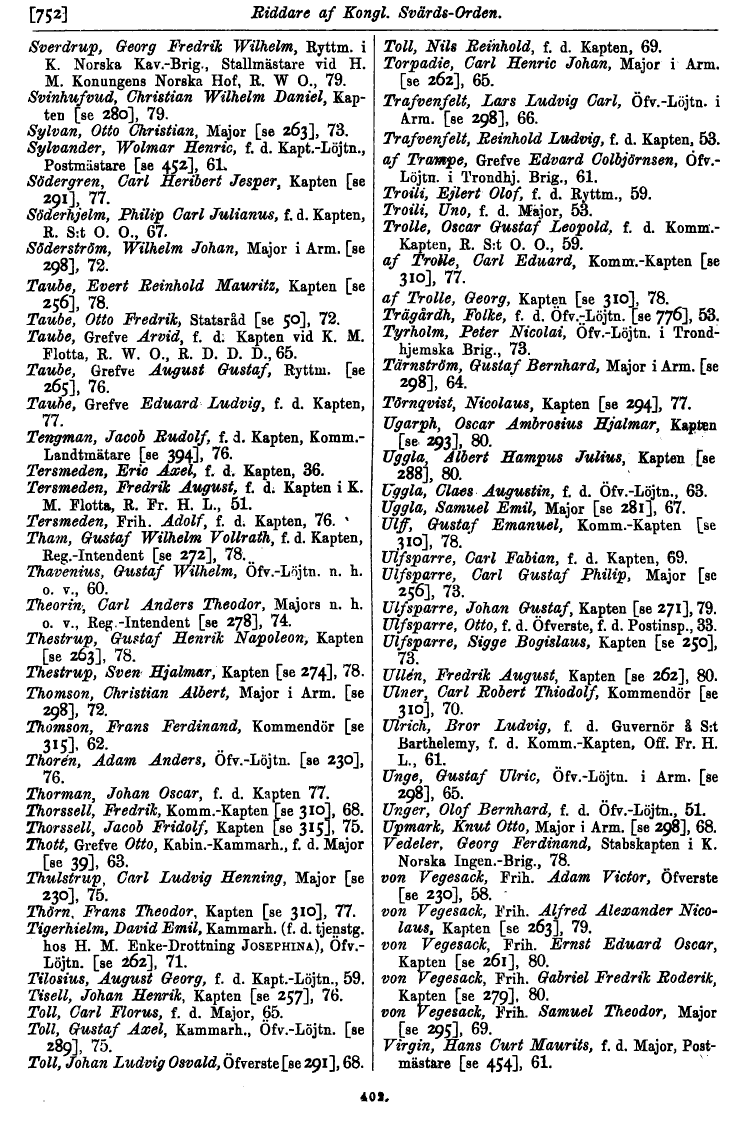 [752] Riddare af Kongl. Svärds-Orden.
Sverdrup, Georg Fredrik Wilhelm, Ryttm. i
K. Norska Kav.-Brig., Stallmästare vid H.
M. Konungens Norska Hof, R. W O., 79.
Svinhufvud, Christian Wilhelm Daniel, Kap-
ten [se 280], 79.
Sylvan, Otto Christian, Major [se 263], 73.
Sylvander, Wolmar Henric, f. d. Kapt.-Löjtn.,
Postmästare [se 452], 61.
Södergren, Carl Heribert Jesper, Kapten [se
291], 77.
Söderhjelm, Philip Carl Julianus, f. d. Kapten,
R. S:t O. O., 67.
Söderström, Wilhelm Johan, Major i Arm. [se
298], 72.
Taube, Evert Reinhold Mauritz, Kapten [se
256], 78.
Taube, Otto Fredrik, Statsråd [se 50], 72.
Taube, Grefve Arvid, f. d. Kapten vid K. M.
Flotta, R. W. O., R. D. D. D., 65.
Taube, Grefve August Gustaf, Ryttm. [se
265], 76.
Taube, Grefve Eduard Ludvig, f. d. Kapten,
77.
Tengman, Jacob Rudolf, f. d. Kapten, Komm.-
Landtmätare [se 394], 76.
Tersmeden, Eric Axel, f. d. Kapten, 36.
Tersmeden, Fredrik August, f. d. Kapten i K.
M. Flotta, R. Fr. H. L., 51.
Tersmeden, Frih. Adolf, f. d. Kapten, 76.
Tham, Gustaf Wilhelm Vollrath, f. d. Kapten,
Reg.-Intendent [se 272], 78.
Thavenius, Gustaf Wilhelm, Öfv.-Löjtn. n. h.
o. v., 60.
Theorin, Carl Anders Theodor, Majors n. h.
o. v., Reg.-Intendent [se 278], 74.
Thestrup, Gustaf Henrik Napoleon, Kapten
[se 263], 78.
Thestrup, Sven Hjalmar, Kapten [se 274], 78.
Thomson, Christian Albert, Major i Arm. [se
298], 72.
Thomson, Frans Ferdinand, Kommendör [se
315], 62.
Thorén, Adam Anders, Öfv.-Löjtn. [se 230],
76.
Thorman, Johan Oscar, f. d. Kapten 77.
Thorssell, Fredrik, Komm.-Kapten [se 310], 68.
Thorssell, Jacob Fridolf, Kapten [se 315], 75.
Thott, Grefve Otto, Kabin.-Kammarh., f. d. Major
[se 39], 63.
Thulstrup, Carl Ludvig Henning, Major [se
230], 75.
Thörn, Frans Theodor, Kapten [se 310], 77.
Tigerhielm, David Emil, Kammarh. (f. d. tjenstg.
hos H. M. Enke-Drottning JOSEPHINA), Öfv.-
Löjtn. [se 262], 71.
Tilosius, August Georg, f. d. Kapt.-Löjtn., 59.
Tisell, Johan Henrik, Kapten [se 257], 76.
Toll, Carl Florus, f. d. Major, 65.
Toll, Gustaf Axel, Kammarh., Öfv.-Löjtn. [se
289], 75.
Toll, Johan Ludvig Osvald, Öfverste [se 291], 68.
Toll, Nils Reinhold, f. d. Kapten, 69.
Torpadie, Carl Henric Johan, Major i Arm.
[se 262], 65.
Trafvenfelt, Lars Ludvig Carl, Öfv.-Löjtn. i
Arm. [se 298], 66.
Trafvenfelt, Reinhold Ludvig, f. d. Kapten, 53.
af Trampe, Grefve Edvard Colbjörnsen, Öfv.-
Löjtn. i Trondhj. Brig., 61.
Troili, Ejlert Olof, f. d. Ryttm., 59.
Troili, Uno, f. d. Major, 53.
Trolle, Oscar Gustaf Leopold, f. d. Komm.-
Kapten, R. S:t O. O., 59.
af Trolle, Carl Eduard, Komm.-Kapten [se
310], 77.
af Trolle, Georg, Kapten [se 310], 78.
Trägårdh, Folke, f. d. Öfv.-Löjtn. [se 776], 53.
Tyrholm, Peter Nicolai, Öfv.-Löjtn. i Trond-
hjemska Brig., 73.
Tärnström, Gustaf Bernhard, Major i Arm. [se
298], 64.
Törnqvist, Nicolaus, Kapten [se 294], 77.
Ugarph, Oscar Ambrosius Hjalmar, Kapten
[se 293], 80.
Uggla, Albert Hampus Julius, Kapten [se
288], 80.
Uggla, Claes Augustin, f. d. Öfv.-Löjtn., 63.
Uggla, Samuel Emil, Major [se 281], 67.
Ulff, Gustaf Emanuel, Komm.-Kapten [se
310], 78.
Ulfsparre, Carl Fabian, f. d. Kapten, 69.
Ulfsparre, Carl Gustaf Philip, Major [se
256], 73.
Ulfsparre, Johan Gustaf, Kapten [se 271], 79.
Ulfsparre, Otto, f. d. Öfverste, f. d. Postinsp., 33.
Ulfsparre, Sigge Bogislaus, Kapten [se 250],
73.
Ullén, Fredrik August, Kapten [se 262], 80.
Ulner, Carl Robert Thiodolf, Kommendör [se
310], 70.
Ulrich, Bror Ludvig, f. d. Guvernör å S:t
Barthelemy, f. d. Komm.-Kapten, Off. Fr. H.
L., 61.
Unge, Gustaf Ulric, Öfv.-Löjtn. i Arm. [se
298], 65.
Unger, Olof Bernhard, f. d. Öfv.-Löjtn., 51.
Upmark, Knut Otto, Major i Arm. [se 298], 68.
Vedeler, Georg Ferdinand, Stabskapten i K.
Norska Ingen.-Brig., 78.
von Vegesack, Frih. Adam Victor, Öfverste
[se 230], 58.
von Vegesack, Frih. Alfred Alexander Nico-
laus, Kapten [se 263], 79.
von Vegesack, Frih. Ernst Eduard Oscar,
Kapten [se 261], 80.
von Vegesack, Frih. Gabriel Fredrik Roderik,
Kapten [se 279], 80.
von Vegesack, Frih. Samuel Theodor, Major
[se 295], 69.
Virgin, Hans Curt Maurits, f. d. Major, Post-
mästare [se 454], 61.
402.